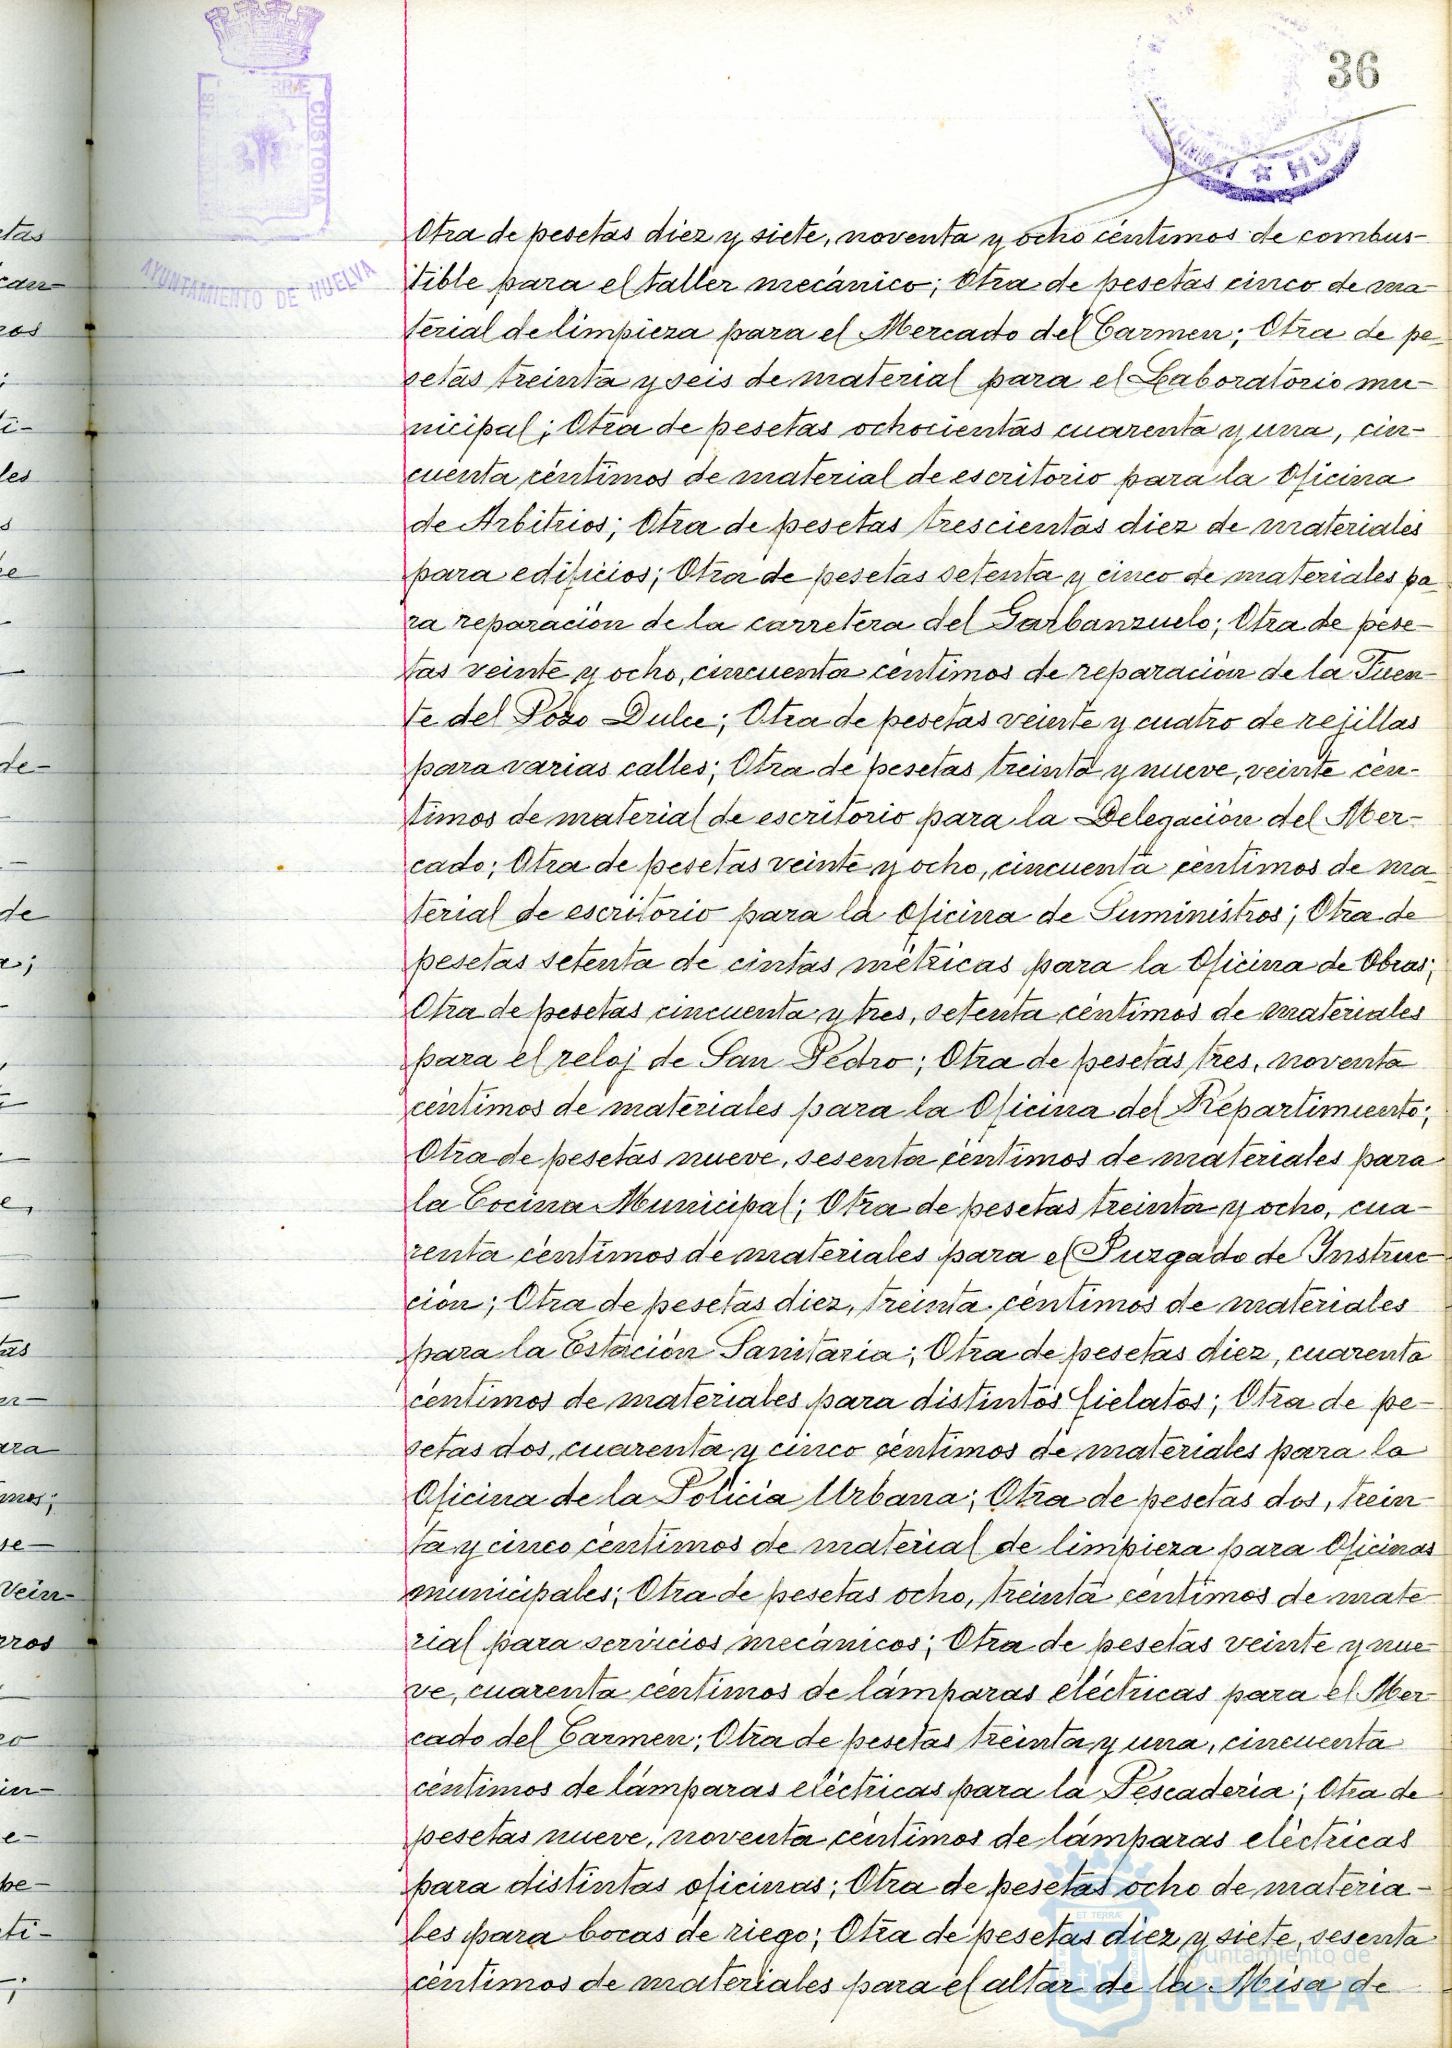 36
AYUNTAMIENTO DE HUELVA
CUSTODIA
Otra de pesetas diez y siete, noventa y ocho céntimos de combus-
tible para el taller mecánico; Otra de pesetas cinco de ma-
terial de limpieza para el Mercado del Carmen; Otra de pe-
setas treinta y seis de material para el Laboratorio mu-
nicipal; Otra de pesetas ochocientas cuarenta y una, cin-
cuenta céntimos de material de escritorio para la Oficina
de Arbitrios; Otra de pesetas trescientas diez de materiales
para edificios; Otra de pesetas setenta y cinco de materiales pa-
ra reparación de la carretera del Garbanzuelo; Otra de pese-
tas veinte y ocho, cincuenta céntimos de reparación de la Fuen-
te del Pozo Dulce; Otra de pesetas veinte y cuatro de rejillas
para varias calles; Otra de pesetas treinta y nueve, veinte cén-
timos de material de escritorio para la Delegación del Mer-
cado; Otra de pesetas veinte y ocho, cincuenta céntimos de ma-
terial de escritorio para la Oficina de Suministros; Otra de
pesetas setenta de cintas métricas para la Oficina de Obras;
Otra de pesetas cincuenta y tres, setenta céntimos de materiales
para el reloj de San Pedro; Otra de pesetas tres, noventa
céntimos de materiales para la Oficina del Repartimiento;
Otra de pesetas nueve, sesenta céntimos de materiales para
la Cocina Municipal; Otra de pesetas treinta y ocho, cua-
renta céntimos de materiales para el Juzgado de Instruc-
ción; Otra de pesetas diez, treinta céntimos de materiales
para la Estación Sanitaria; Otra de pesetas diez, cuarenta
céntimos de materiales para distintos fielatos; Otra de pe-
setas dos, cuarenta y cinco céntimos de materiales para la
Oficina de la Policía Urbana; Otra de pesetas dos, trein-
ta y cinco céntimos de material de limpieza para Oficinas
municipales; Otra de pesetas ocho, treinta céntimos de mate-
rial para servicios mecánicos; Otra de pesetas veinte y nue-
ve, cuarenta céntimos de lámparas eléctricas para el Mer-
cado del Carmen; Otra de pesetas treinta y una, cincuenta
céntimos de lámparas eléctricas para la Pescadería; Otra de
pesetas nueve, noventa céntimos de lámparas eléctricas
para distintas oficinas; Otra de pesetas ocho de materia-
les para bocas de riego; Otra de pesetas diez y siete, sesenta
céntimos de materiales para el altar de la Misa de
Ayuntamiento de
HUELVA